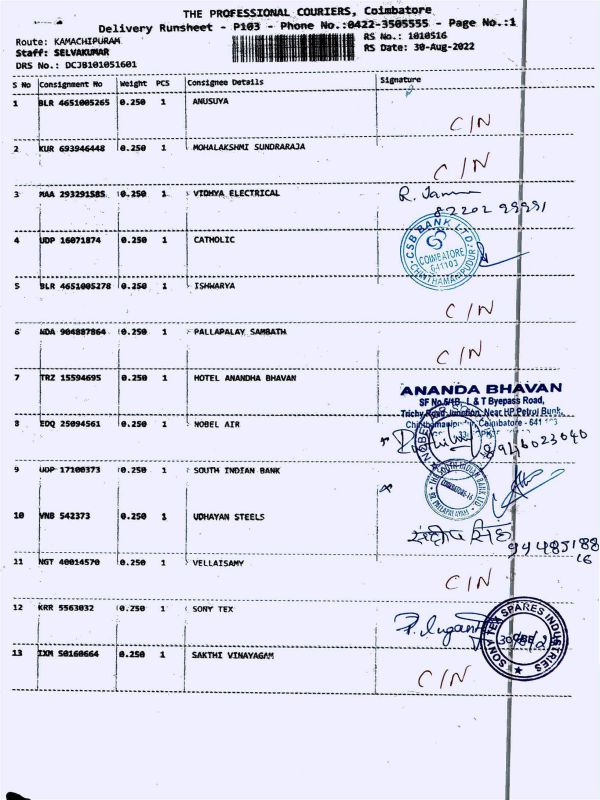 THE PROFESSIONAL COURIERS, Coimbatore
Delivery Runsheet - P103 - Phone No.:0422-3505555 - Page No.:1
Route: KAMACHIPURAM
RS No.: 1010516
Staff: SELVAKUMAR
RS Date: 30-Aug-2022
DRS No.: DCJB101051601
S No Consignment No Weight PCS Consignee Details Signature
1 BLR 4651005265 0.250 1 ANUSUYA
C/N
2 KUR 693946448 0.250 1 MOHALAKSHMI SUNDRARAJA
C/N
3 MAA 293291585 0.250 1 VIDHYA ELECTRICAL
R.
82202 99991
4 UDP 16071874 0.250 1 CATHOLIC
CSB BANK LTD.
COIMBATORE
641103
CHINTHAMANIPUDUR
5 BLR 4651005278 0.250 1 ISHWARYA
C/N
6 NDA 904887864 0.250 1 PALLAPALAY SAMBATH
C/N
7 TRZ 15594695 0.250 1 HOTEL ANANDHA BHAVAN
ANANDA BHAVAN
SF No.5/1B, L & T Byepass Road,
Trichy Road Junction, Near HP Petrol Bunk,
Coimbatore - 641
8 EDQ 25094561 0.250 1 NOBEL AIR
8946023040
9 UDP 17100373 0.250 1 SOUTH INDIAN BANK
THE SOUTH INDIAN BANK LTD
COIMBATORE-16
10 VNB 542373 0.250 1 UDHAYAN STEELS
संदीप सिंह
94485188
16
11 NGT 40014570 0.250 1 VELLAISAMY
C/N
12 KRR 5563032 0.250 1 SONY TEX
SONY TEX SPARES INDUSTRIES
13 IXM 50160664 0.250 1 SAKTHI VINAYAGAM
C/N